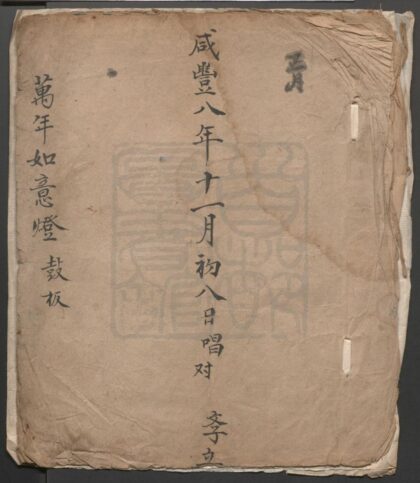 正月
咸豐八年十一月初八日唱对 斈立
萬年如意燈 鼓板